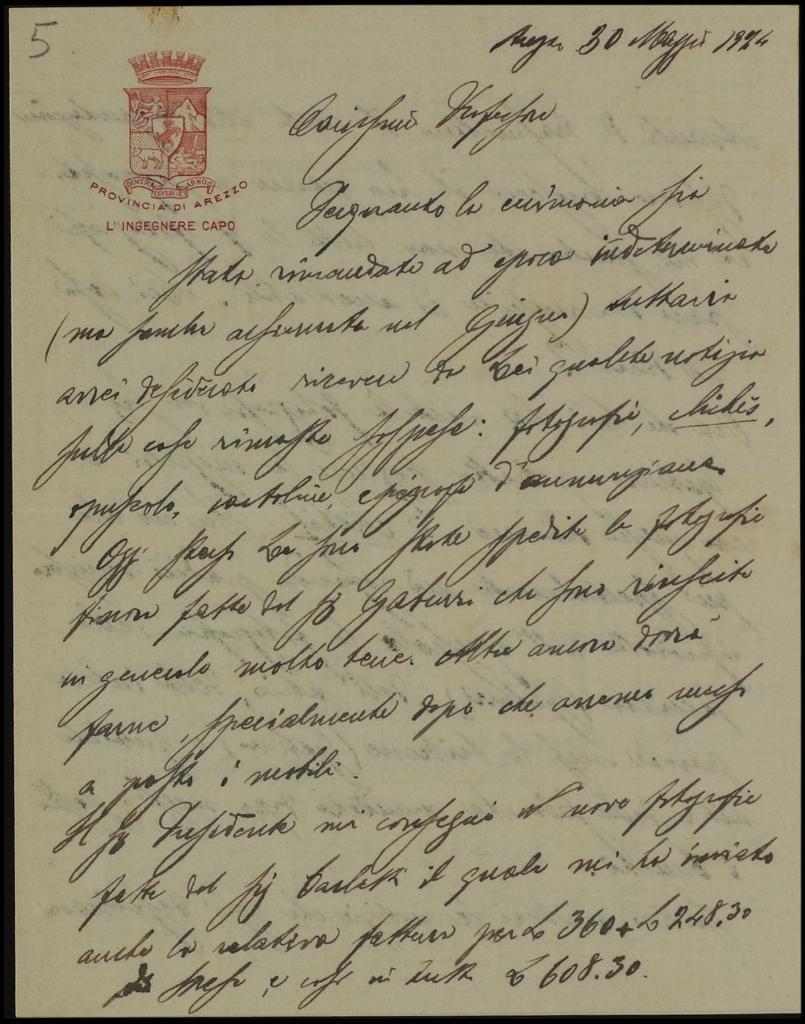 5
Arezzo 30 Maggio 1924
Carissimo Professore
SINTRA TEVERE ET ARNUS
PROVINCIA DI AREZZO
L'INGEGNERE CAPO
Quantunque la cerimonia sia
stata rimandata ad epoca indeterminata
(ma sembra nel Giugno) tuttavia
avrei desiderato ricevere da Lei qualche notizia
sulle cose rimaste sospese: fotografie, clichés,
opuscolo, cartoline, epigrafe d'annunziana.
Oggi stesso Le sono state spedite le fotografie
finora fatte dal Sig Gaburri che sono riuscite
in generale molto bene. Altre ancora dovrà
farne, specialmente dopo che avremo messo
a posto i mobili.
Il Sig Presidente mi consegnò le nove fotografie
fatte dal Sig Barletti il quale mi ha inviato
anche la relativa fattura per L 360 + L 248.30
di spese, e così in tutto L 608.30.